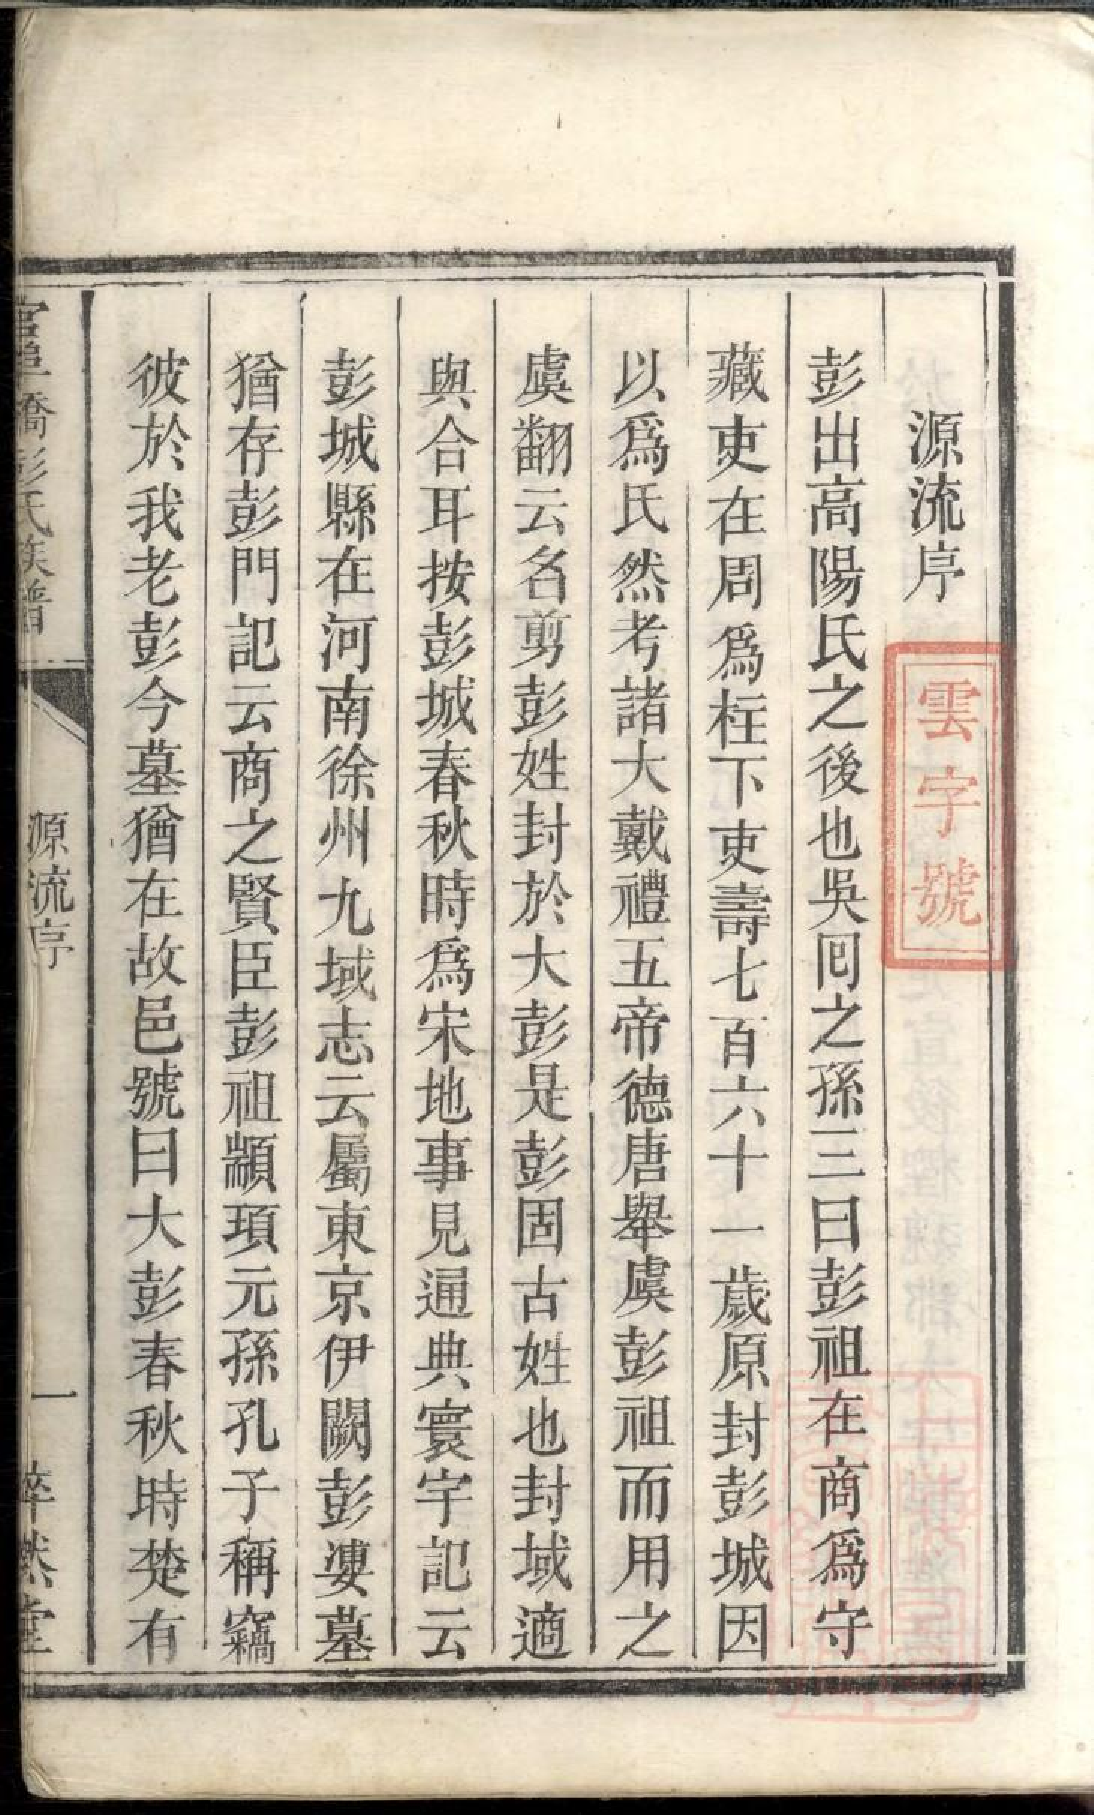 源流序
雲字號
彭出高陽氏之後也吳囘之孫三曰彭祖在商爲守
藏吏在周爲柱下吏壽七百六十一歲原封彭城因
以爲氏然考諸大戴禮五帝德唐舉虞彭祖而用之
虞翻云名剪彭姓封於大彭是彭固古姓也封域適
與合耳按彭城春秋時爲宋地事見通典寰宇記云
彭城縣在河南徐州九域志云屬東京伊闕彭婆墓
猶存彭門記云商之賢臣彭祖顓頊元孫孔子稱竊
彼於我老彭今墓猶在故邑號曰大彭春秋時楚有
官埠橋彭氏族譜
源流序
一
睟然堂